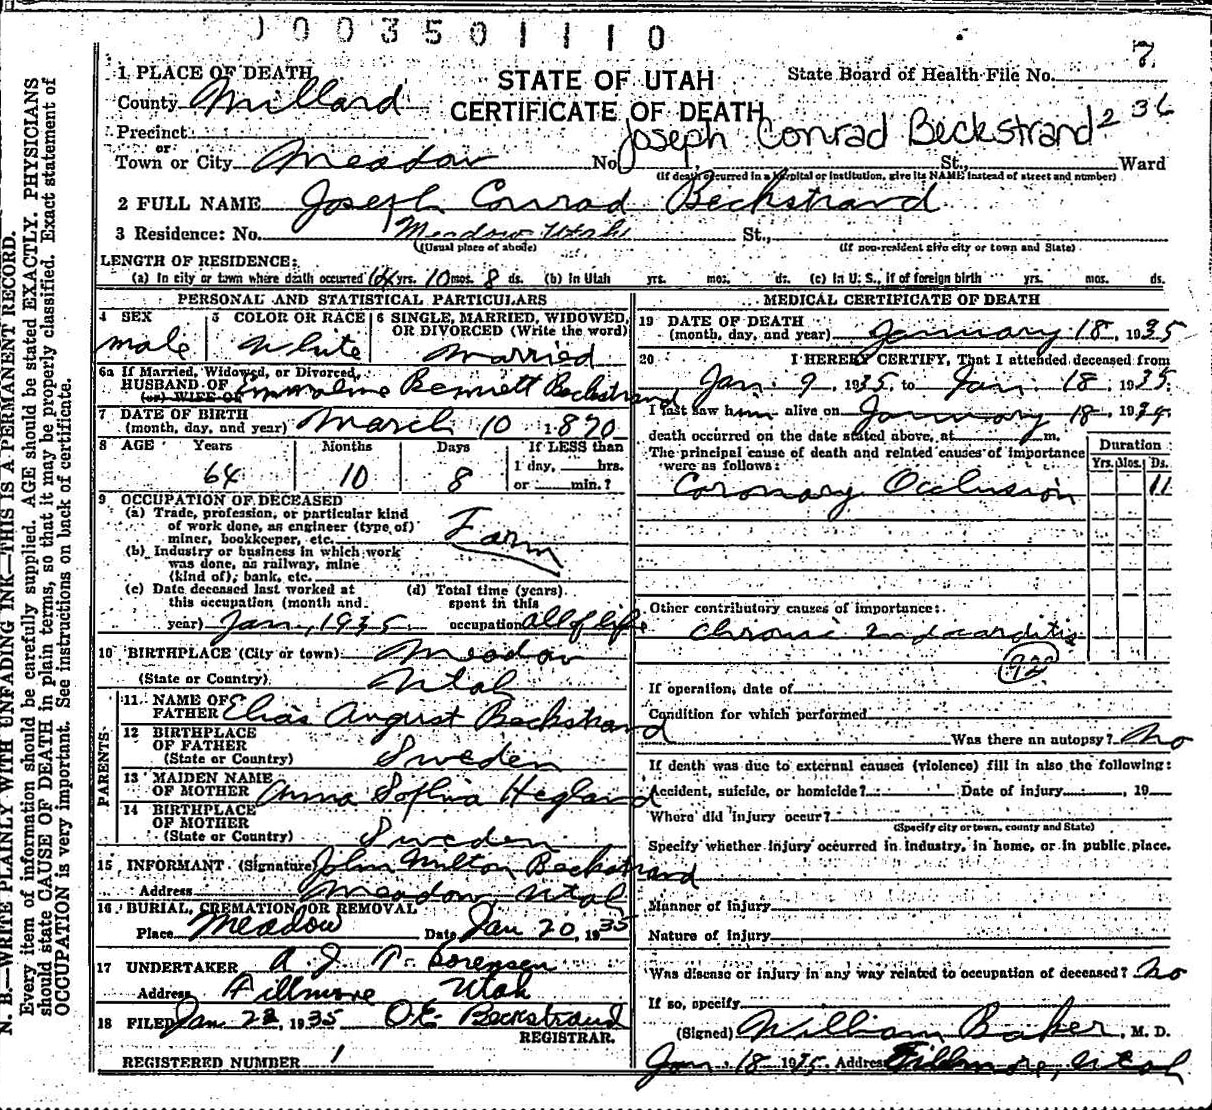 1003501110
7
1 PLACE OF DEATH
STATE OF UTAH
State Board of Health File No.
County Millard
CERTIFICATE OF DEATH
Precinct
Joseph Conrad Beckstrand 236
or
Town or City Meadow No. St., Ward
(If death occurred in a hospital or institution, give its NAME instead of street and number)
2 FULL NAME Joseph Conrad Beckstrand
3 Residence: No. Meadow Utah St.,
(Usual place of abode) (If non-resident give city or town and State)
LENGTH OF RESIDENCE:
(a) In city or town where death occurred 64 yrs. 10 mos. 8 ds. (b) In Utah yrs. mos. ds. (c) In U. S., if of foreign birth yrs. mos. ds.
PERSONAL AND STATISTICAL PARTICULARS
4 SEX 5 COLOR OR RACE 6 SINGLE, MARRIED, WIDOWED,
OR DIVORCED (Write the word)
male White Married
6a If Married, Widowed, or Divorced,
HUSBAND OF
(or) WIFE OF Emmoline Bennett Beckstrand
7 DATE OF BIRTH
(month, day, and year) March 10 1870
8 AGE Years Months Days If LESS than
1 day, hrs.
64 10 8 or min.?
9 OCCUPATION OF DECEASED
(a) Trade, profession, or particular kind
of work done, as engineer (type of)
miner, bookkeeper, etc. Farm
(b) Industry or business in which work
was done, as railway, mine
(kind of), bank, etc.
(c) Date deceased last worked at (d) Total time (years)
this occupation (month and spent in this
year) Jan, 1935 occupation all of life
10 BIRTHPLACE (City or town) Meadow
(State or Country) Utah
PARENTS
11 NAME OF
FATHER Elias August Beckstrand
12 BIRTHPLACE
OF FATHER
(State or Country) Sweden
13 MAIDEN NAME
OF MOTHER Anna Sophia Hegland
14 BIRTHPLACE
OF MOTHER
(State or Country) Sweden
15 INFORMANT (Signature) John Milton Beckstrand
Address Meadow, Utah
16 BURIAL, CREMATION OR REMOVAL
Place Meadow Date Jan 20, 1935
17 UNDERTAKER A. J. Sorensen
Address Fillmore Utah
18 FILED Jan 22, 1935 O.E. Beckstrand
REGISTRAR.
REGISTERED NUMBER 1
MEDICAL CERTIFICATE OF DEATH
19 DATE OF DEATH
(month, day, and year) January 18, 1935
20 I HEREBY CERTIFY, That I attended deceased from
Jan. 9, 1935, to Jan. 18, 1935.
I last saw him alive on January 18, 19
death occurred on the date stated above, at m.
The principal cause of death and related causes of importance
were as follows:
Duration
Yrs. Mos. Ds.
Coronary Occlusion 11
Other contributory causes of importance:
Chronic Endocarditis
If operation, date of
Condition for which performed
Was there an autopsy? No
If death was due to external causes (violence) fill in also the following:
Accident, suicide, or homicide? Date of injury , 19
Where did injury occur?
(Specify city or town, county and State)
Specify whether injury occurred in industry, in home, or in public place.
Manner of injury
Nature of injury
Was disease or injury in any way related to occupation of deceased? No
If so, specify
(Signed) William Baker, M. D.
Jan. 18 1935 Address Fillmore, Utah
N. B.—WRITE PLAINLY WITH UNFADING INK—THIS IS A PERMANENT RECORD.
Every item of information should be carefully supplied. AGE should be stated EXACTLY. PHYSICIANS
should state CAUSE OF DEATH in plain terms, so that it may be properly classified. Exact statement of
OCCUPATION is very important. See instructions on back of certificate.